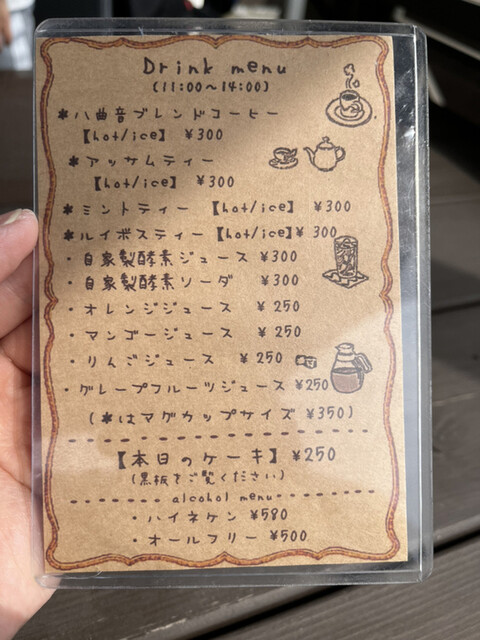 Drink menu
(11:00~14:00)
*八曲音ブレンドコーヒー
【hot/ice】 ¥300
*アッサムティー
【hot/ice】 ¥300
*ミントティー 【hot/ice】 ¥300
*ルイボスティー【hot/ice】¥300
・自家製酵素ジュース ¥300
・自家製酵素ソーダ ¥300
・オレンジジュース ¥250
・マンゴージュース ¥250
・りんごジュース ¥250
・グレープフルーツジュース ¥250
(*はマグカップサイズ ¥350)
【本日のケーキ】 ¥250
(黒板をご覧ください)
alcohol menu
・ハイネケン ¥580
・オールフリー ¥500